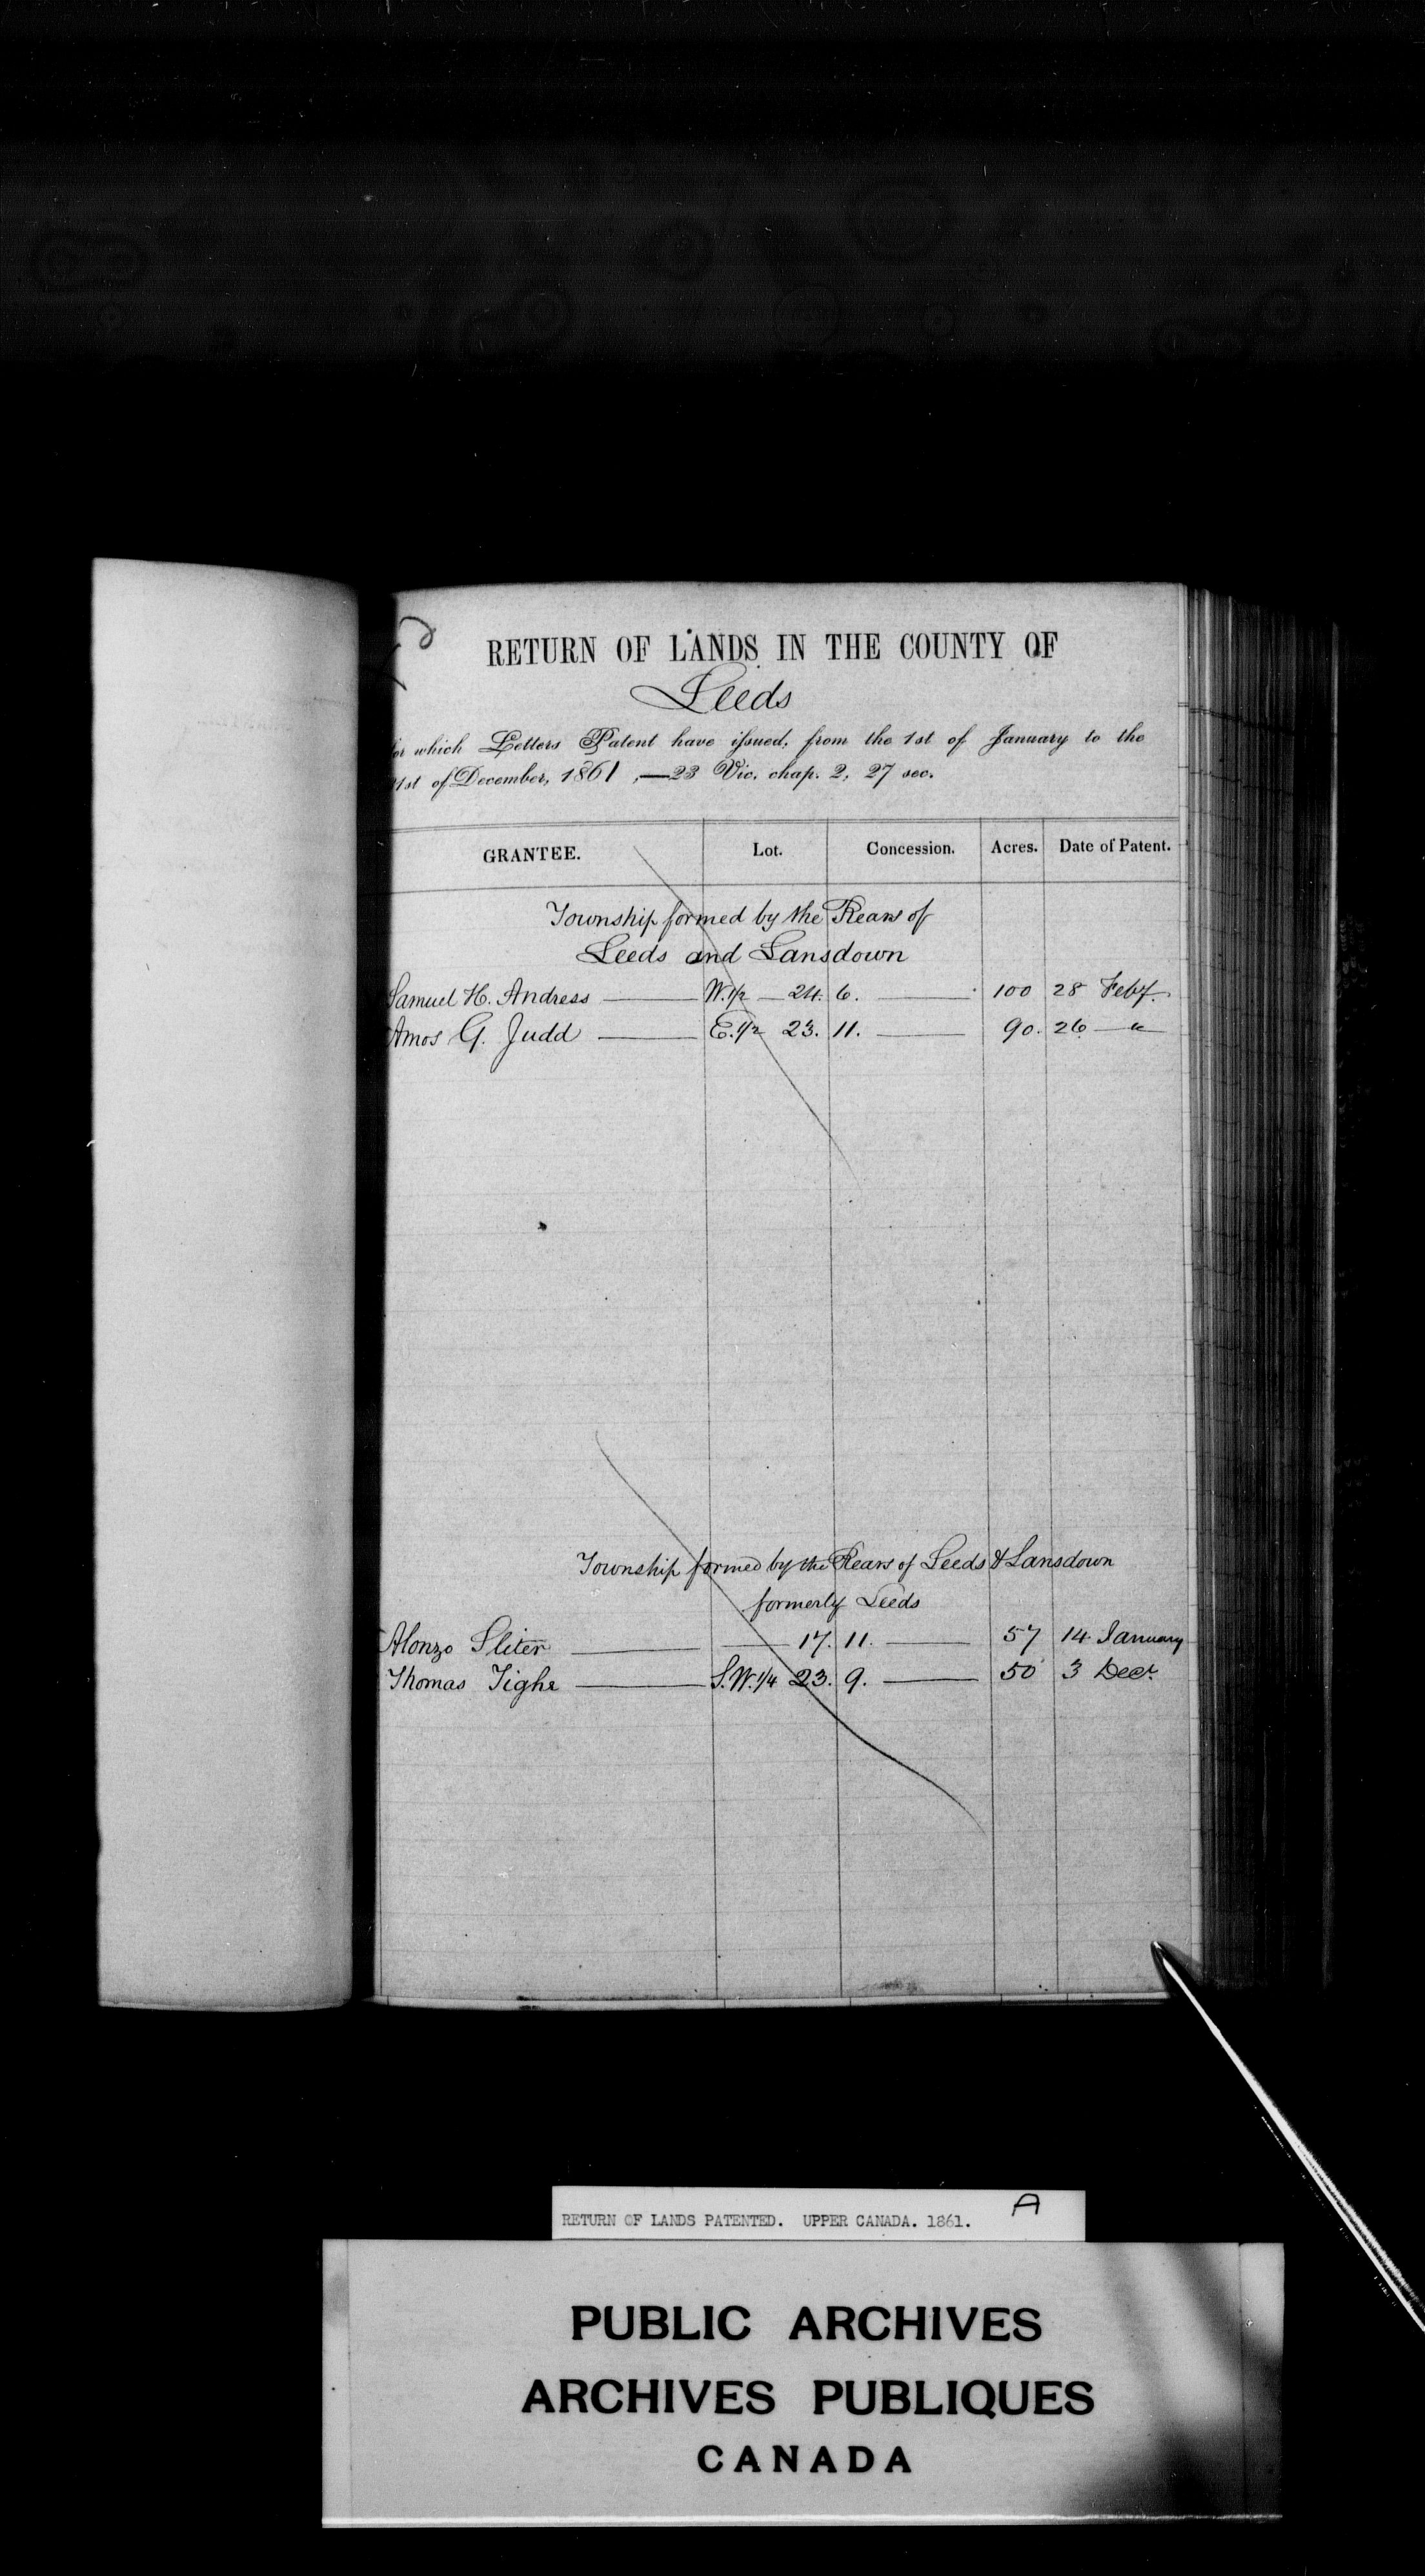 RETURN OF LANDS IN THE COUNTY OF
Leeds
for which Letters Patent have issued, from the 1st of January to the
31st of December, 1861, —23 Vic. chap. 2, 27 sec.
GRANTEE. Lot. Concession. Acres. Date of Patent.
Township formed by the Rears of
Leeds and Lansdown
Samuel H. Andress — W. 1/2 — 24. 6. — 100 28 Feby.
Amos G. Judd — E. 1/2 23. 11. — 90. 26 — "
Township formed by the Rears of Leeds & Lansdown
formerly Leeds
Alonzo Sliter — — 17. 11. — 57 14 January
Thomas Tighe — S.W. 1/4 23. 9. — 50 3 Decr.
RETURN OF LANDS PATENTED. UPPER CANADA. 1861. A
PUBLIC ARCHIVES
ARCHIVES PUBLIQUES
CANADA